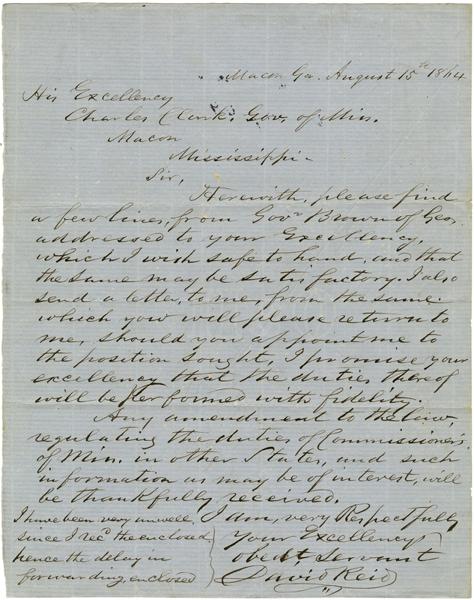 Macon Ga. August 15th 1864
His Excellency
Charles Clark. Gov. of Miss.
Macon
Mississippi-
Sir,
Herewith, please find
a few lines, from Govr Brown of Geo.
addressed to your Excellency,
which I wish safe to hand, and that
the same may be satisfactory. I also
send a letter, to me, from the same.
which you will please return to
me, should you appoint me to
the position sought, I promise your
excellency that the duties thereof
will be performed with fidelity.
Any amendment to the law,
regulating the duties of Commissioners
of Miss. in other States, and such
information as may be of interest, will
be thankfully received.
I am, very Respectfully
Your Excellency
obedt. Servant
David Reid
I have been very unwell,
since I recd the enclosed
hence the delay in
forwarding, enclosed